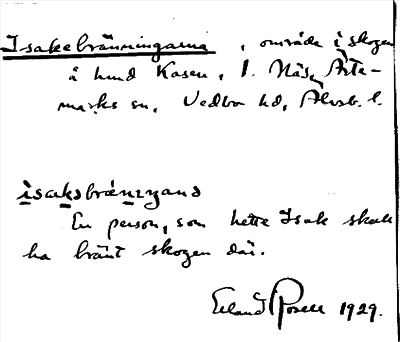 Isaksbränningarna, område i skogen
å hmd Kasen, 1. Näs, Årte-
marks sn, Vedbo hd, Älvsb. l.
isaksbrän̄iŋana
En person, som hette Isak skall
ha bränt skogen där.
Erland Rosell 1929.